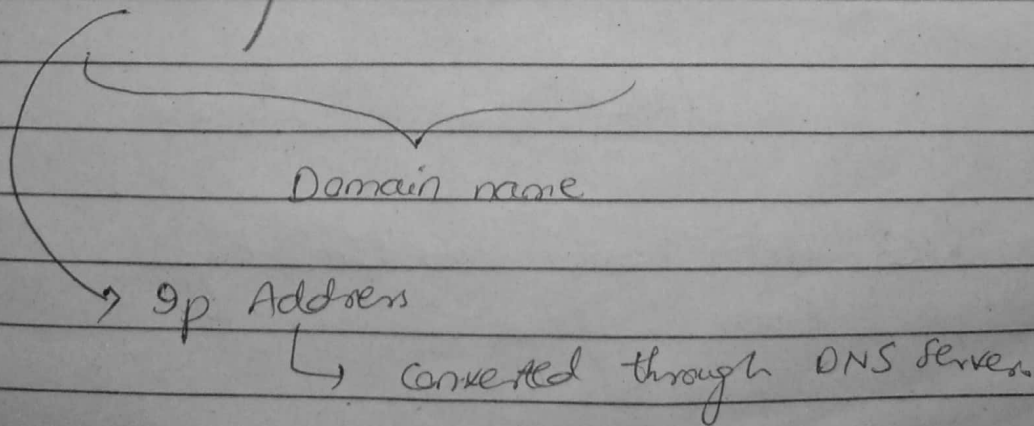 Domain name
Ip Address
Converted through DNS Server